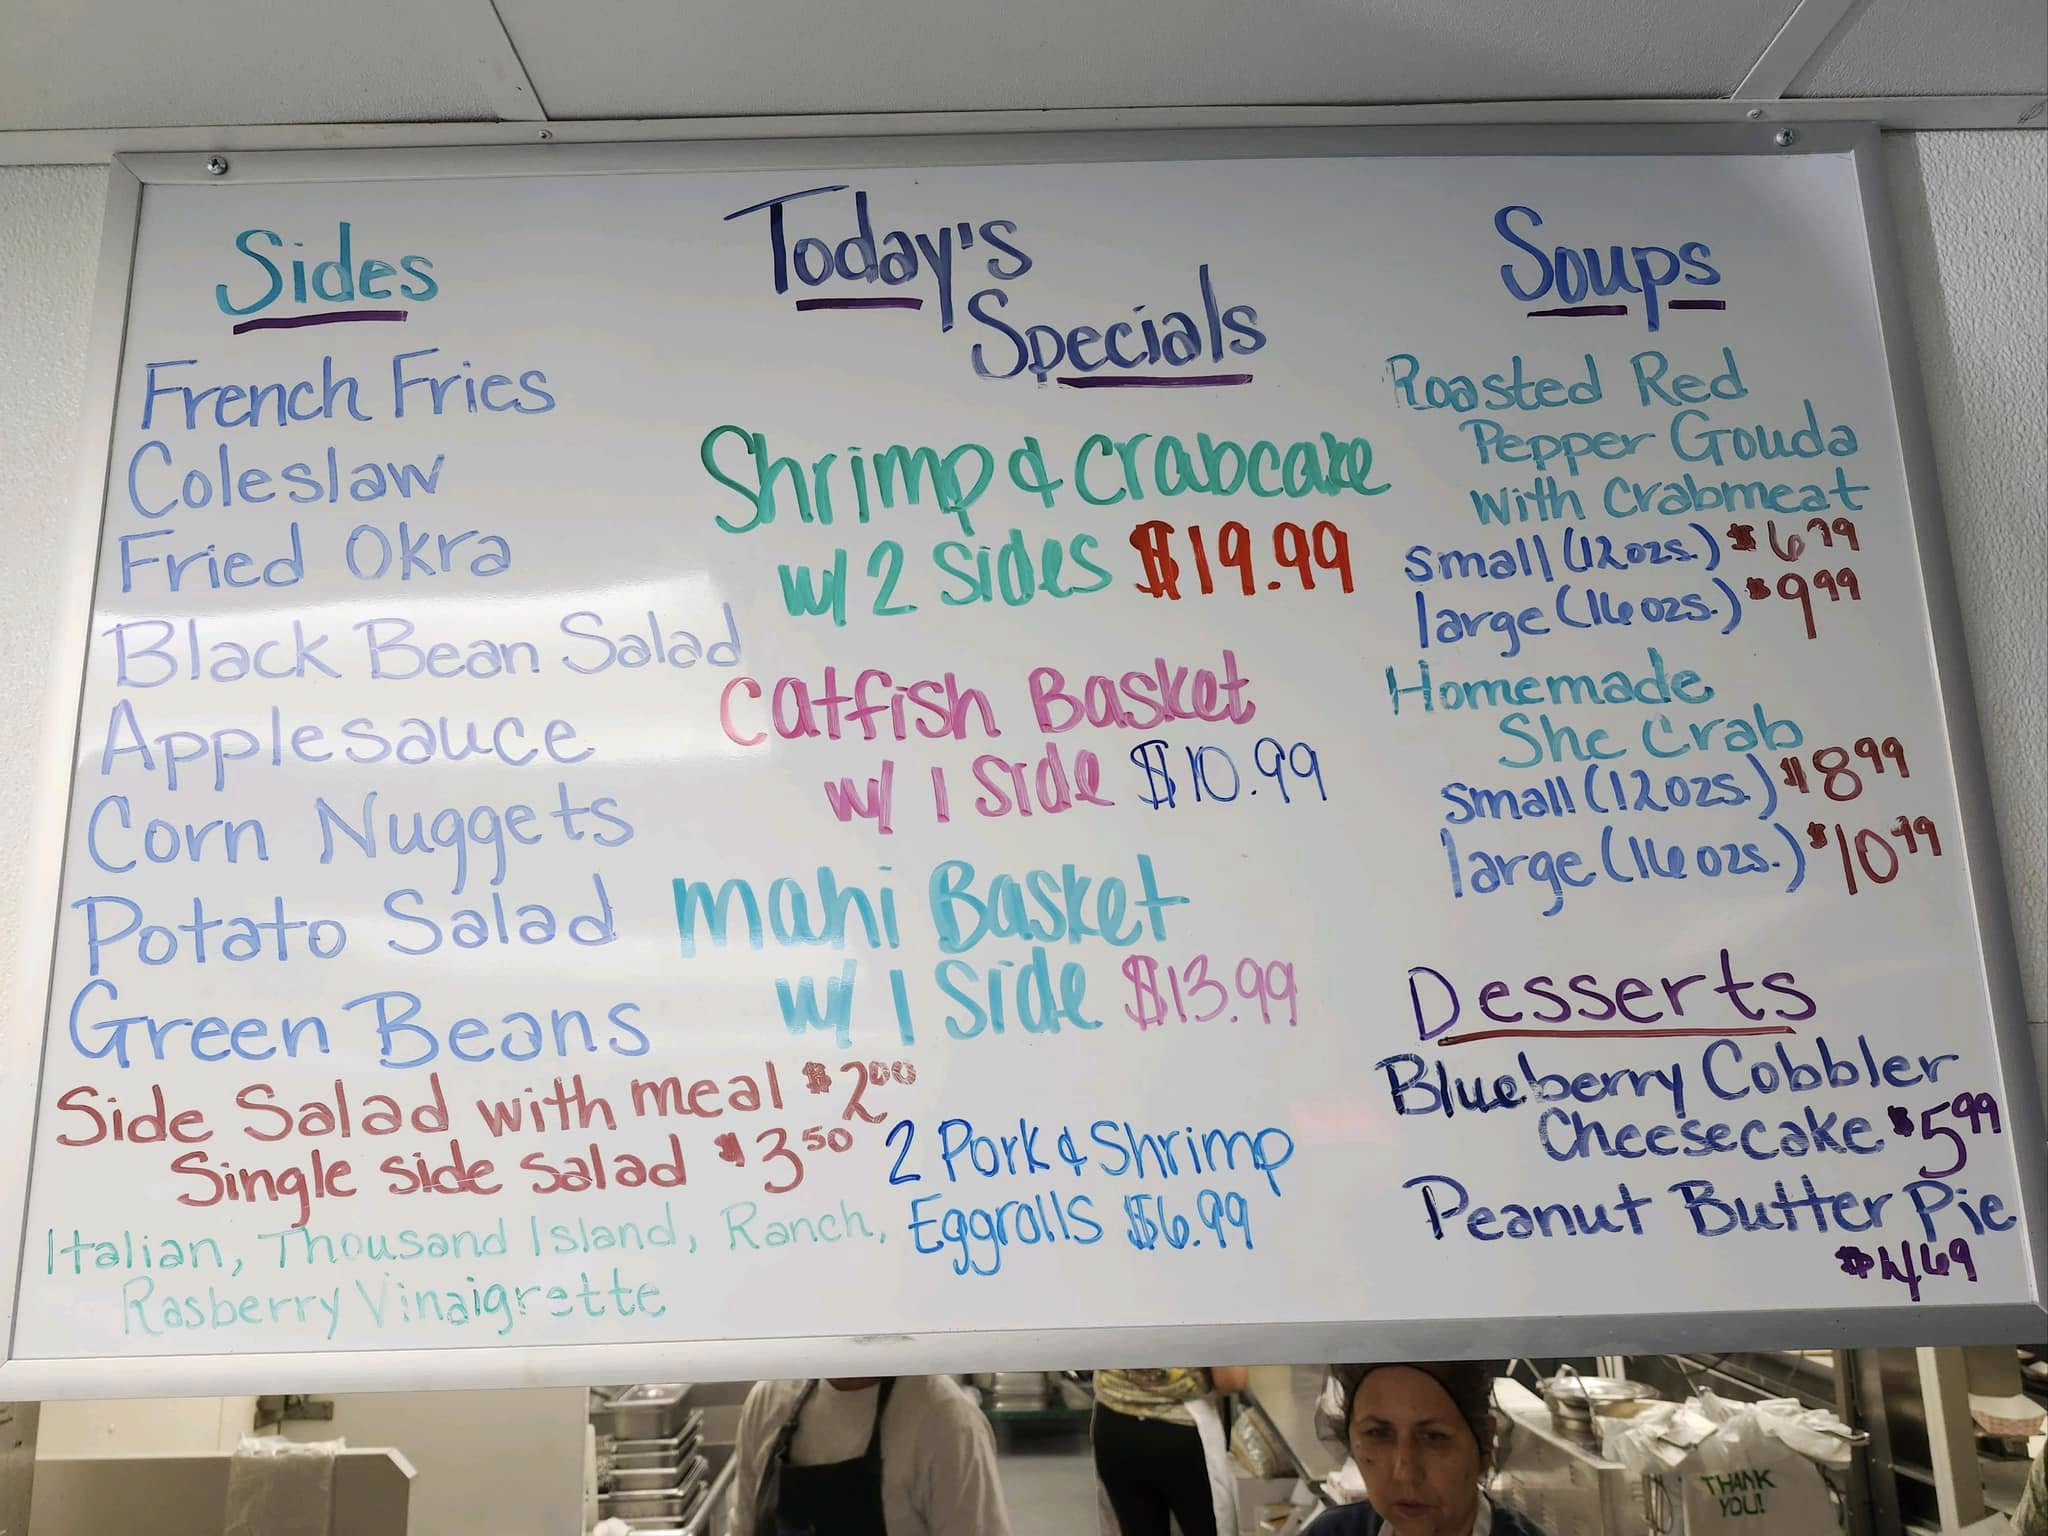 Sides
French Fries
Coleslaw
Fried Okra
Black Bean Salad
Applesauce
Corn Nuggets
Potato Salad
Green Beans
Side Salad with meal $2.00
Single side salad $3.50
Italian, Thousand Island, Ranch,
Rasberry Vinaigrette
Today's
Specials
Shrimp & Crabcake
w/ 2 Sides $19.99
Catfish Basket
w/ 1 Side $10.99
Mahi Basket
w/ 1 Side $13.99
2 Pork & Shrimp
Eggrolls $6.99
Soups
Roasted Red
Pepper Gouda
with Crabmeat
small (12 ozs.)
large (16 ozs.) $9.99
Homemade
She Crab
small (12 ozs.) $8.99
large (16 ozs.)
Desserts
Blueberry Cobbler
Cheesecake $5.99
Peanut Butter Pie
THANK
YOU!